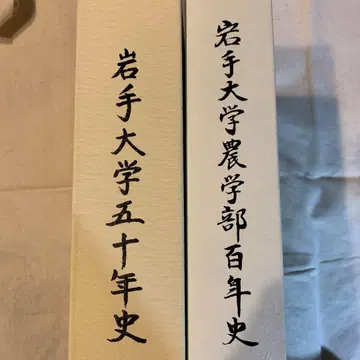 岩手大学農学部百年史
岩手大学五十年史